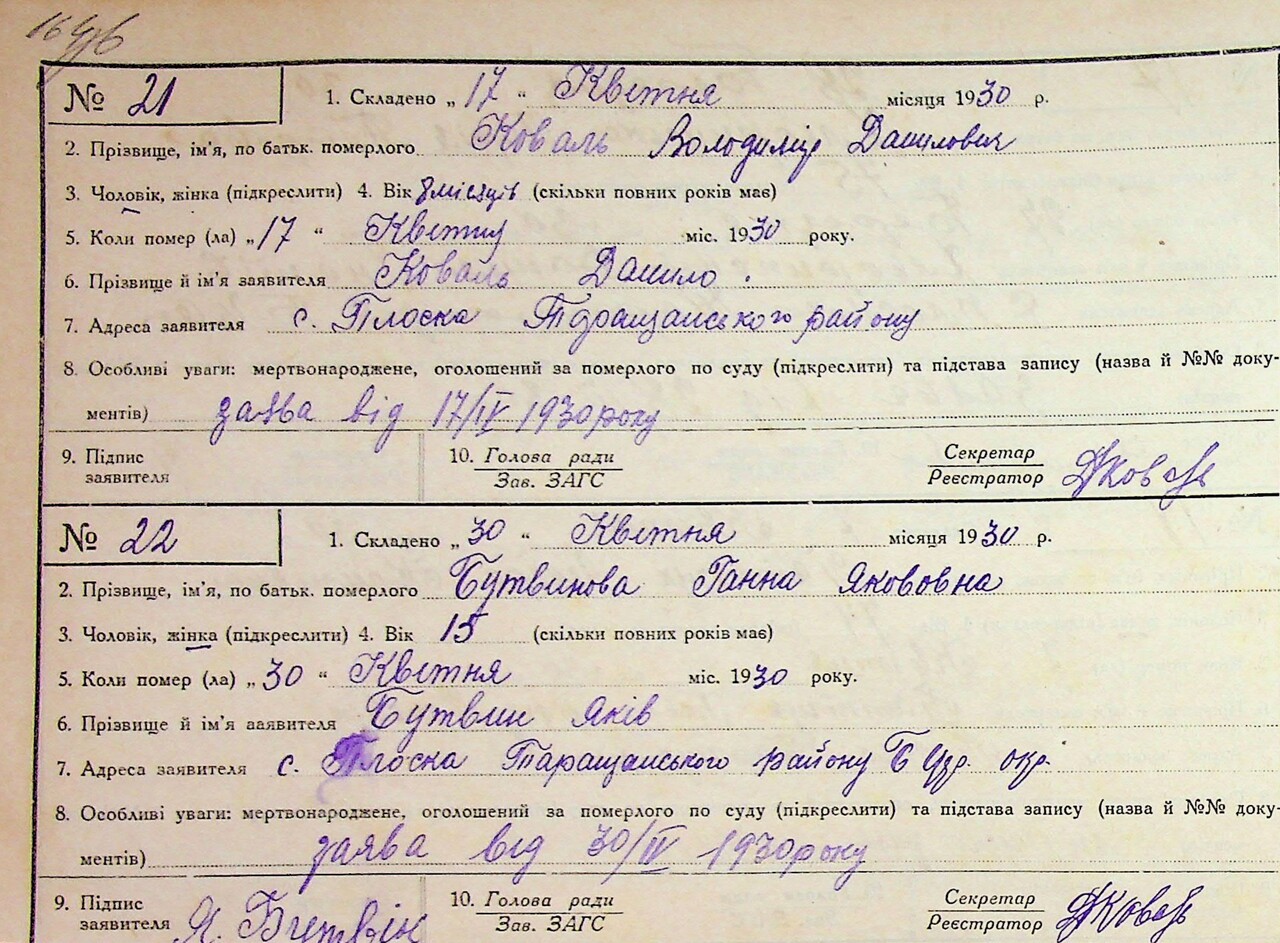 № 21 1. Складено „ 17 “ Квітня місяця 1930 р.
2. Прізвище, ім'я, по батьк. померлого Коваль Володимір Данилович
3. Чоловік, жінка (підкреслити) 4. Вік 8 місяців (скільки повних років має)
5. Коли помер (ла) „ 17 “ Квітня міс. 1930 року.
6. Прізвище й ім'я заявителя Коваль Данило.
7. Адреса заявителя с. Плоска Таращанського району
8. Особливі уваги: мертвонароджене, оголошений за померлого по суду (підкреслити) та підстава запису (назва й №№ доку-
ментів) заява від 17/IV 1930 року
9. Підпис заявителя 10. Голова ради Зав. ЗАГС Секретар Реєстратор ДКоваль
№ 22 1. Складено „ 30 “ Квітня місяця 1930 р.
2. Прізвище, ім'я, по батьк. померлого Бутвинова Ганна Якововна
3. Чоловік, жінка (підкреслити) 4. Вік 15 (скільки повних років має)
5. Коли помер (ла) „ 30 “ Квітня міс. 1930 року.
6. Прізвище й ім'я заявителя Бутвин Яків
7. Адреса заявителя с. Плоска Таращанського району Б окр.
8. Особливі уваги: мертвонароджене, оголошений за померлого по суду (підкреслити) та підстава запису (назва й №№ доку-
ментів) заява від 30/IV 1930 року
9. Підпис заявителя Я. Бутвін 10. Голова ради Зав. ЗАГС Секретар Реєстратор ДКоваль